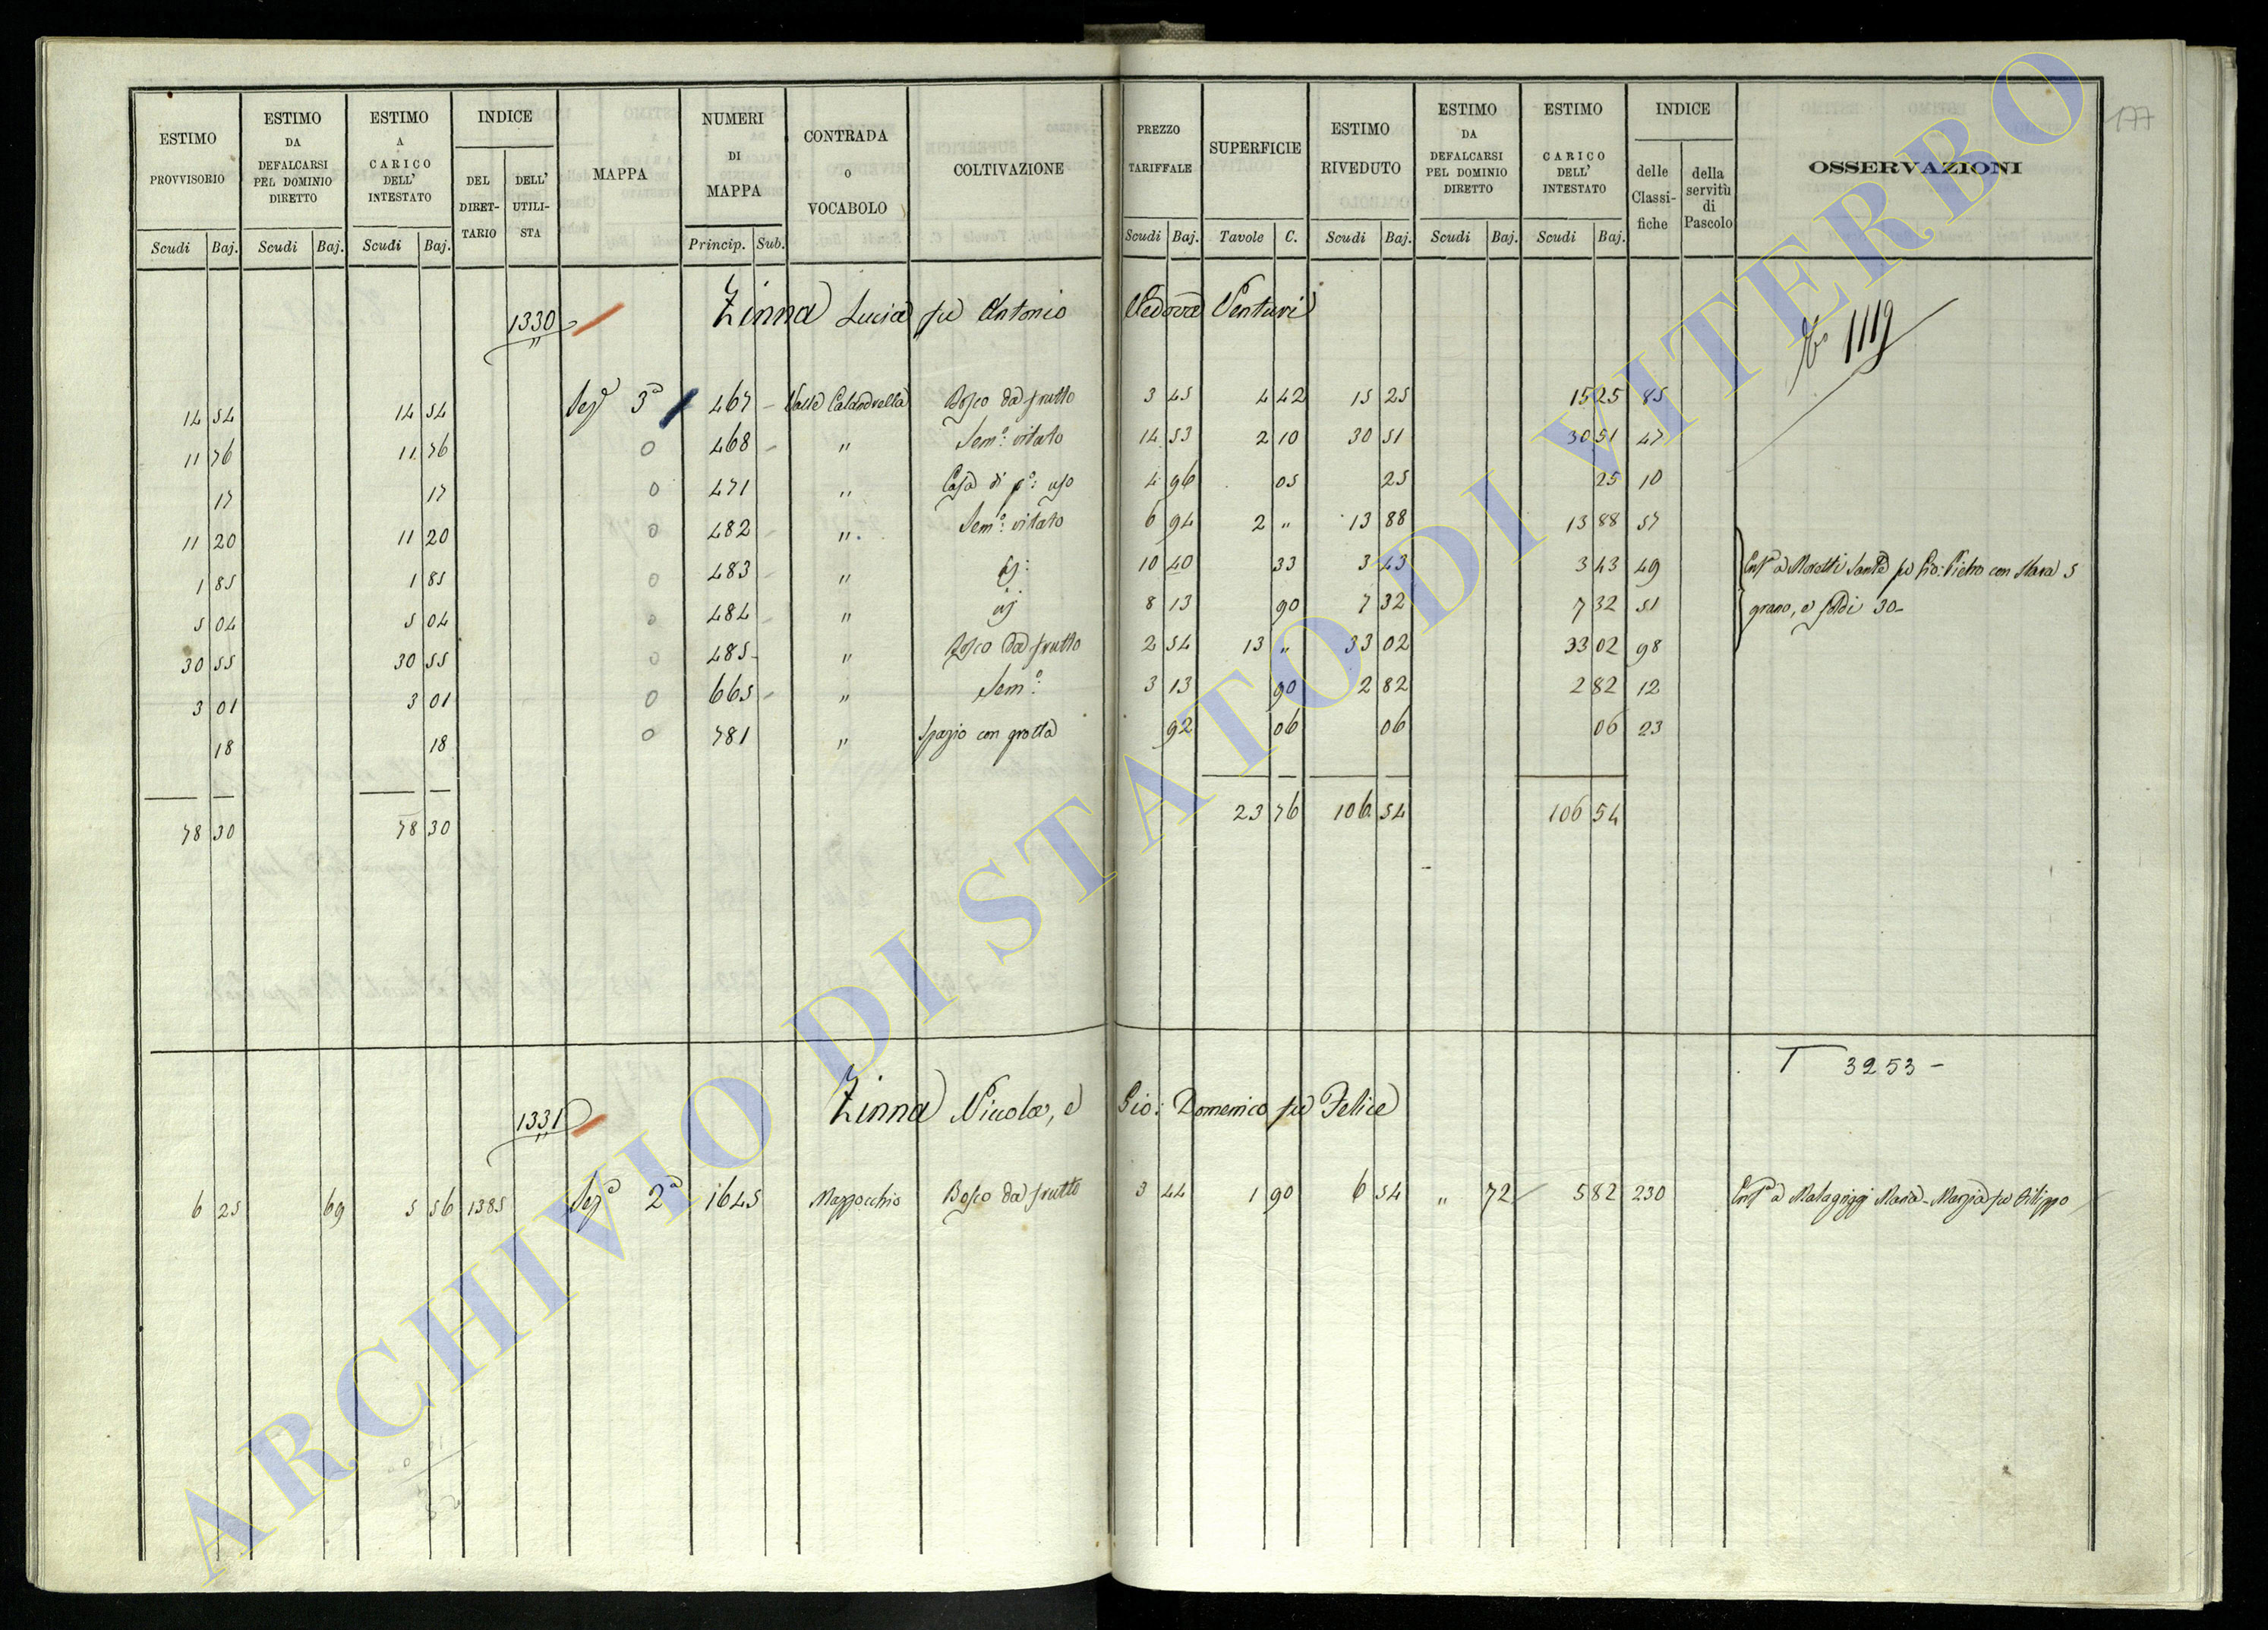 177
ESTIMO PROVVISORIO | ESTIMO DA DEFALCARSI PEL DOMINIO DIRETTO | ESTIMO A CARICO DELL' INTESTATO | INDICE DEL DIRET-TARIO | DELL' UTILI-STA | MAPPA | NUMERI DI MAPPA | CONTRADA O VOCABOLO | COLTIVAZIONE | PREZZO TARIFFALE | SUPERFICIE | ESTIMO RIVEDUTO | ESTIMO DA DEFALCARSI PEL DOMINIO DIRETTO | ESTIMO A CARICO DELL' INTESTATO | INDICE delle Classi-fiche | della servitù di Pascolo | OSSERVAZIONI
Scudi Baj. | Scudi Baj. | Scudi Baj. | Princip. Sub. | Scudi Baj. | Tavole C. | Scudi Baj. | Scudi Baj. | Scudi Baj.
1330 Zinna Lucia fu Antonio Vedova Venturi
1119
14 54 | 14 54 | Sez.e 3a | 467 | Valle | Bosco da frutto | 3 45 | 4 42 | 15 25 | 15 25 | 85
11 76 | 11 76 | 0 | 468 | " | Sem.o vitato | 14 53 | 2 10 | 30 51 | 30 51 | 47
17 | 17 | 0 | 471 | " | Casa di p.o uso | 4 96 | 05 | 25 | 25 | 10
11 20 | 11 20 | 0 | 482 | " | Sem.o vitato | 6 94 | 2 " | 13 88 | 13 88 | 57
1 85 | 1 85 | 0 | 483 | " | 10 40 | 33 | 3 43 | 3 43 | 49 | Enf.a a Moretti Sante fu Gio: Pietro con Stara 5
5 04 | 5 04 | 0 | 484 | " | 8 13 | 90 | 7 32 | 7 32 | 51 | grano, e soldi 30
30 55 | 30 55 | 0 | 485 | " | Bosco da frutto | 2 54 | 13 " | 33 02 | 33 02 | 98
3 01 | 3 01 | 0 | 665 | " | Sem.o | 3 13 | 90 | 2 82 | 2 82 | 12
18 | 18 | 0 | 781 | " | Spazio con grotta | 92 | 06 | 06 | 06 | 23
78 30 | 78 30 | 23 76 | 106 54 | 106 54
T 3253 -
1331 Zinna Nicola, e Gio: Domenico fu Felice
6 25 | 69 | 5 56 | 1385 | Sez.e 2a | 1645 | Mazzocchio | Bosco da frutto | 3 44 | 1 90 | 6 54 | " 72 | 5 82 | 230 | Enf.a a Malagigi Maria Marzia fu Filippo
ARCHIVIO DI STATO DI VITERBO